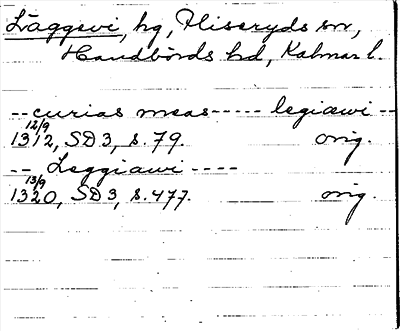 Läggevi, hg, Fliseryds sn,
Handbörds hd, Kalmar l.
-- curias meas ----- legiæwi --
12/9
1312, SD3, s. 79. orig.
-- Leggiawi ----
13/9
1320, SD3, s. 477. orig.